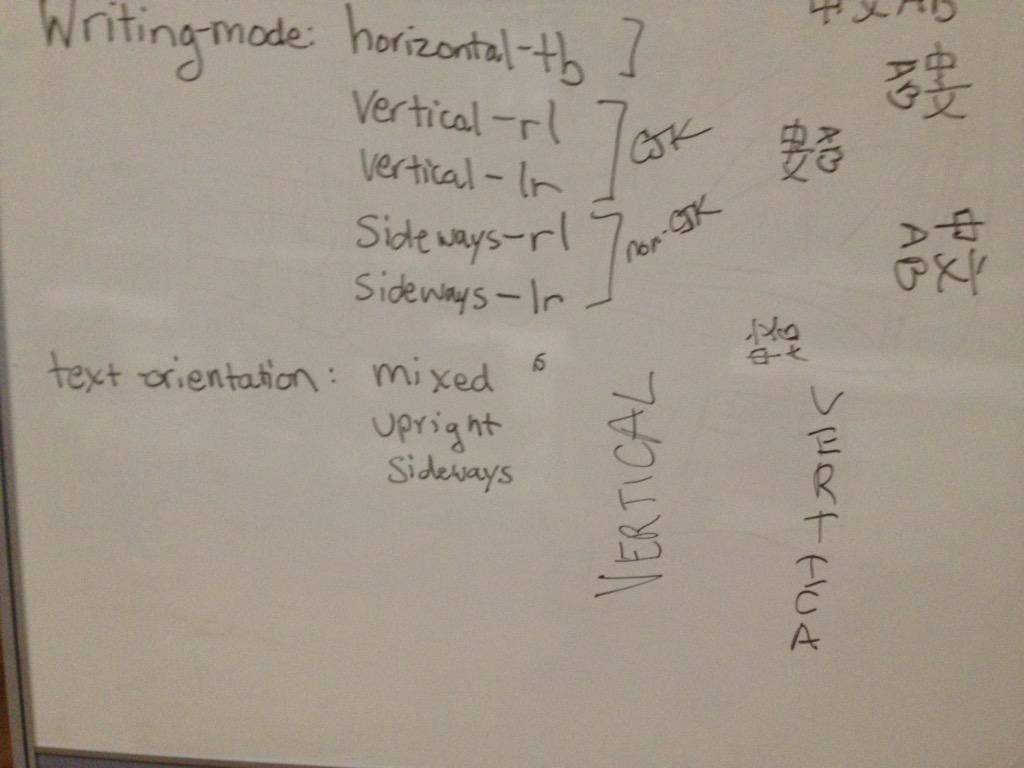 Writing-mode: horizontal-tb ]
vertical-rl
vertical-lr
] CJK
Sideways-rl
Sideways-lr
] non-CJK
text orientation: mixed
upright
Sideways
中文AB
中文
AB
中文
AB
中文
AB
中文
VERTICAL
VERTICA